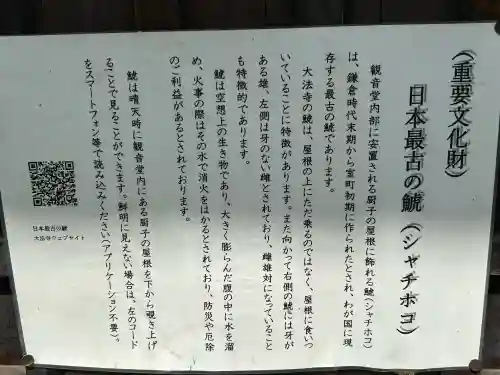 (重要文化財)
日本最古の鯱(シャチホコ)
観音堂内部に安置される厨子の屋根に飾れる鯱(シャチホコ)
は、鎌倉時代末期から室町初期に作られたとされ、わが国に現
存する最古の鯱であります。
大法寺の鯱は、屋根の上にただ乗るのではなく、屋根に食いつ
いていることに特徴があります。また向かって右側の鯱には牙が
ある雄、左側は牙のない雌とされており、雌雄対になっていること
も特徴的であります。
鯱は空想上の生き物であり、大きく膨らんだ腹の中に水を溜
め、火事の際はその水で消火をはかるとされており、防災や厄除
のご利益があるとされております。
鯱は晴天時に観音堂内にある厨子の屋根を下から覗き上げ
ることで見ることができます。鮮明に見えない場合は、左のコード
をスマートフォン等で読み込みください(アプリケーション不要)。
日本最古の鯱
大法寺ウェブサイト